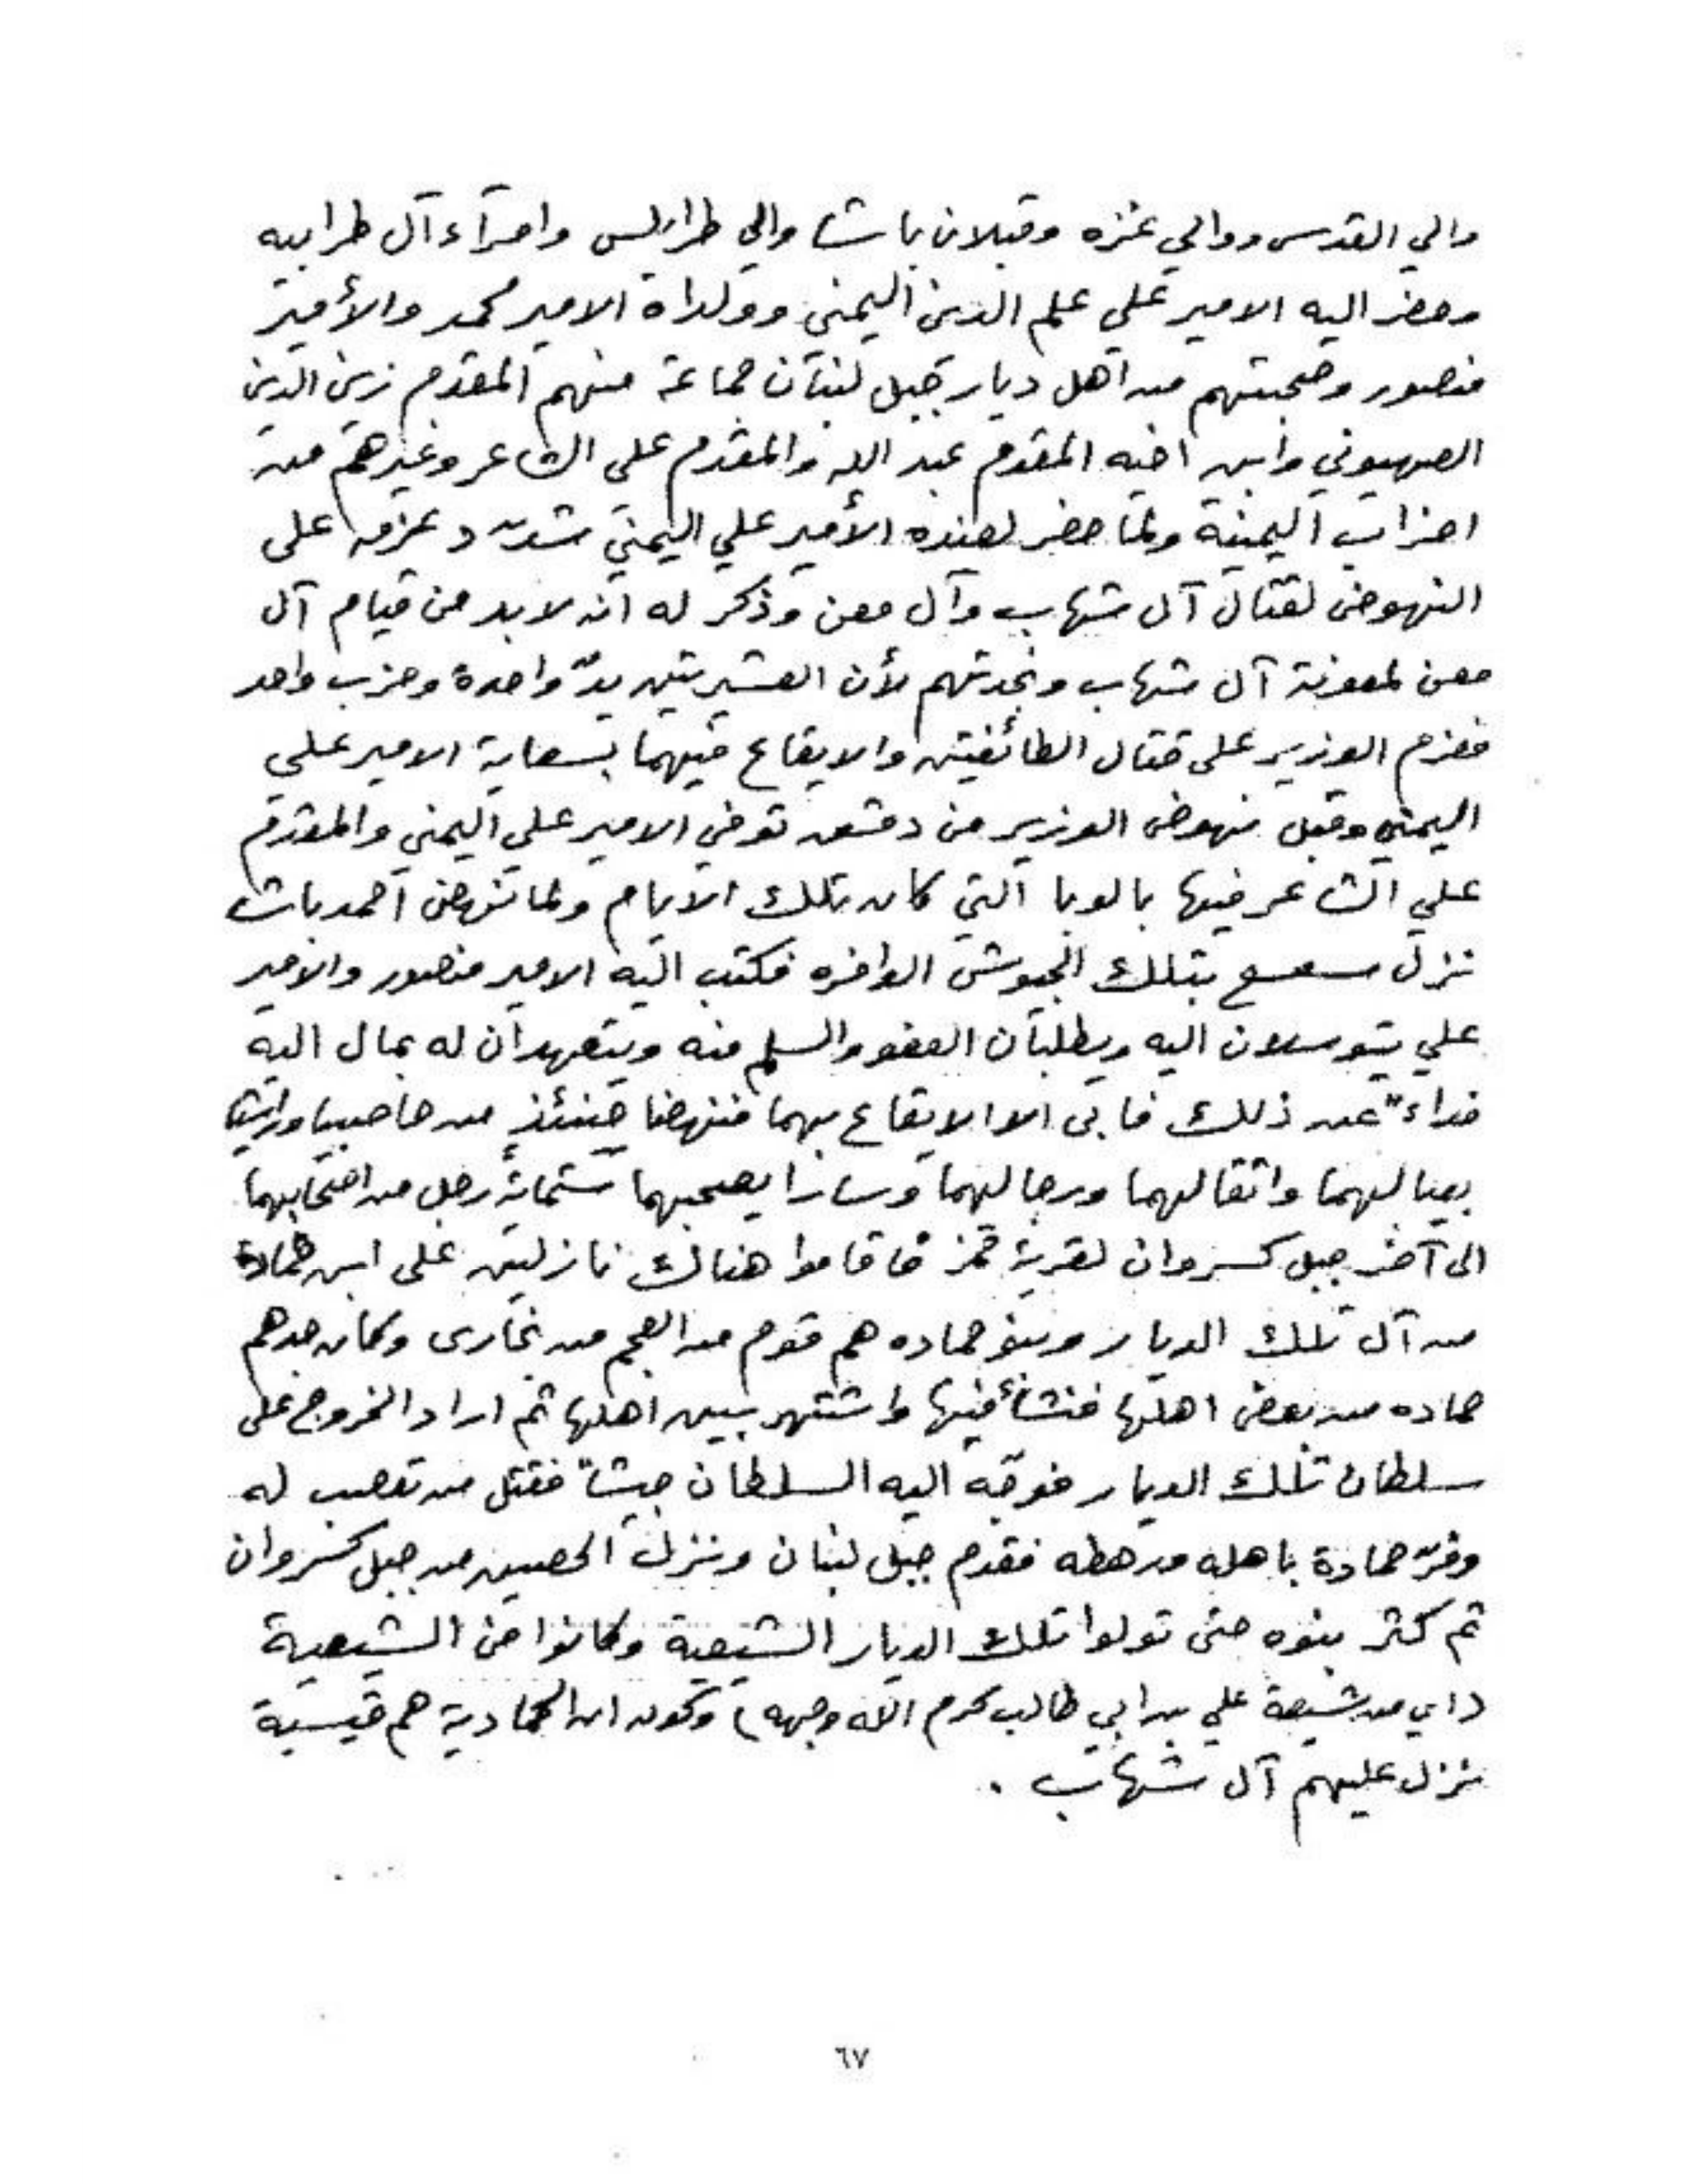 والي القدس ووالي غزه وقبلان باشا والي طرابلس وامرآء آل طرابيه
وحضر اليه الامير علي علم الدين اليمني وولداه الامير محمد والأمير
منصور وصحبتهم من اهل ديار جبل لبنان جماعة منهم المقدم زين الدين
الصهيوني وابن اخيه المقدم عبد الله والمقدم علي الشاعر وغيرهم من
احزاب اليمنية ولما حضر لعنده الأمير علي اليمني شدّد عزمه على
النهوض لقتال آل شهاب وآل معن وذكر له انه لا بد من قيام آل
معن لمعونة آل شهاب ونجدتهم لأن العشيرتين يدٌ واحدة وحزب واحد
فعزم الوزير على قتال الطائفتين والايقاع فيهما بسعاية الامير علي
اليمني وقبل نهوض الوزير من دمشق توفي الامير علي اليمني والمقدم
علي الشاعر فيها بالوبا التي كان بتلك الايام ولما نهض احمد باشا
نزل سعسع بتلك الجيوش الوافره فكتب اليه الامير منصور والامير
علي يتوسلان اليه ويطلبان العفو والسلم منه ويتعهدان له بمال اليه
فداءً عن ذلك فابى الا الايقاع بهما فنهضا حينئذٍ من حاصبيا وراشيا
بعيالهما واثقالهما ورجالهما وسارا يصحبهما ستمائة رجل من اصحابهما
الى آخر جبل كسروان لقرية قمز فاقاموا هنالك نازلين على ابن حماده
من آل تلك الديار وبنو حماده هم قوم من العجم من بخارى وكان جدهم
حماده من بعض اهلها فنشأ فيها واشتهر بين اهلها ثم اراد الخروج على
سلطان تلك الديار فوجّه اليه السلطان جيشاً فقتل من تعصب له
وفرّ حمادة باهله ورهطه فقدم جبل لبنان ونزل الحصين من جبل كسروان
ثم كثر بنوه حتى تولوا تلك الديار الشيعية وكانوا من الشيعية
(اي من شيعة علي بن ابي طالب كرم الله وجهه) وكون ان الحمادية هم قيسية
نزل عليهم آل شهاب .
٦٧